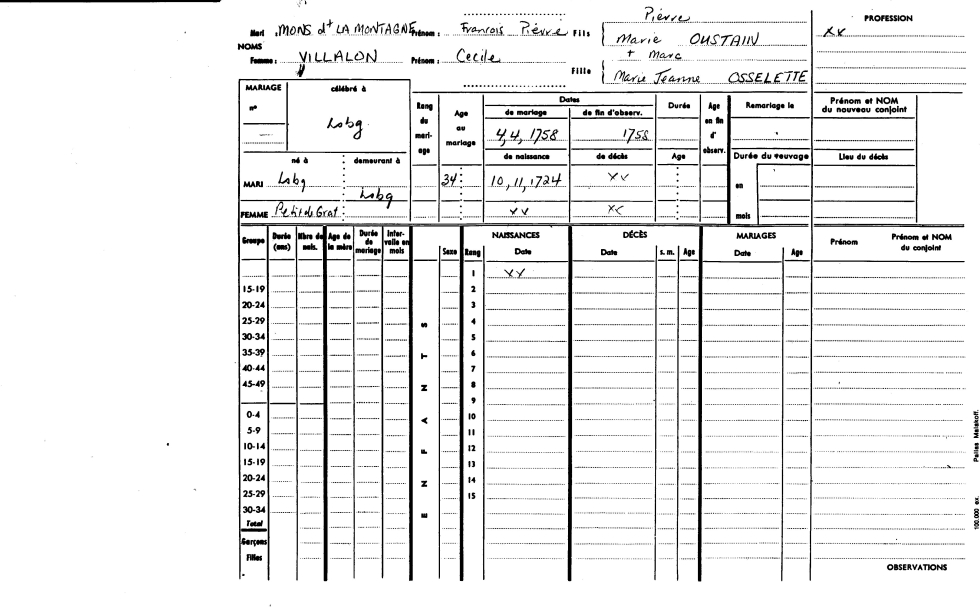 Pierre
PROFESSION
Mari : MONS dt LA MONTAGNE Prénom : Francois Pierre Fils
Marie OUSTAIN
XX
NOMS
+ Marc
Femme : VILLALON Prénom : Cecile
Fille
Marie Jeanne OSSELETTE
MARIAGE célébré à
n°
Lsbg
Rang du mari- age
Age au mariage
Dates
de mariage de fin d'observ.
4,4,1758 1758
de naissance de décès
Durée
Age
Age en fin d' observ.
Remariage le
Prénom et NOM du nouveau conjoint
Durée du veuvage
Lieu du décès
né à demeurant à
MARI Lsbg Lsbg 34 10,11,1724 XX
en
FEMME Petit de Grat XX XX
mois
Groupe
Durée (ans)
Nbre de nais.
Age de la mère
Durée de mariage
Inter- valle en mois
ENFANTS
Sexe
Rang
NAISSANCES
Date
DÉCÈS
Date s. m. Age
MARIAGES
Date Age
Prénom
Prénom et NOM du conjoint
1 XX
15-19 2
20-24 3
25-29 4
30-34 5
35-39 6
40-44 7
45-49 8
9
0-4 10
5-9 11
10-14 12
15-19 13
20-24 14
25-29 15
30-34
Total
Garçons
Filles
OBSERVATIONS
100.000 ex.
Malakoff.